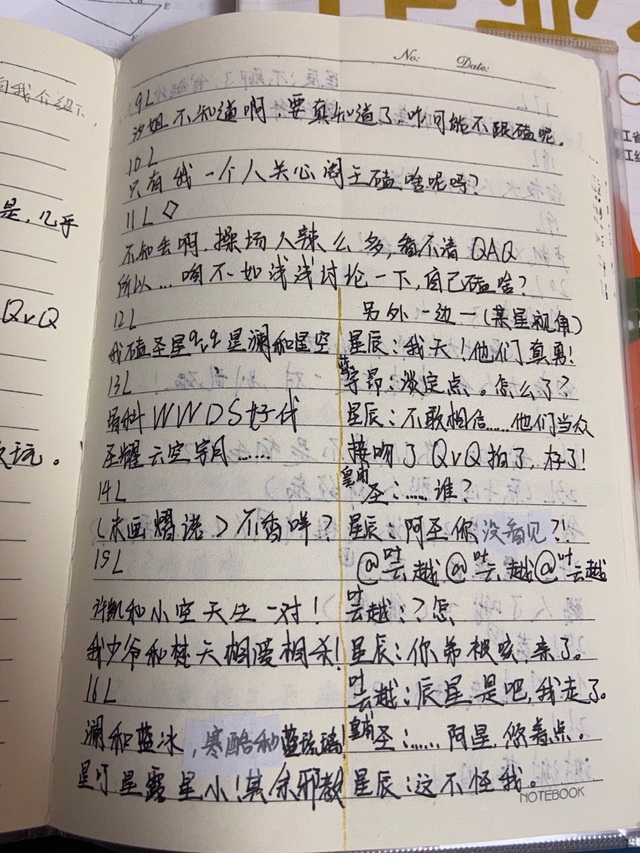 No: Date:
9L
汐姐不知道啊，要真知道了，咋可能不跟磕呢。
10L
只有我一个人关心阁主磕啥呢吗？
11L◇
不知去啊，操场人辣么多，看不清QAQ
所以…咱不如浅浅讨论一下，自己磕啥？
12L
我磕圣星qvq星澜和星空
13L
WWDS好代
圣耀云空宇月……
14L
〈未画熠诺〉不香咩？
15L
许凯和小空天生一对！
我少爷和梵天相爱相杀！
16L
澜和蓝冰，寒酷和蓝琉璃！
星叮星露星小！其余邪教
另外一边一(某星视角)
星辰：我天！他们真勇！
昂：淡定点。怎么了？
星辰：不敢相信……他们当众
接吻了QvQ拍了，存了！
圣：……谁？
星辰：阿圣你没看见？！
@叶云越@叶云越@叶云越
叶云越：？怎
星辰：你弟被咳，亲了。
叶云越：辰星是吧，我走了。
圣：……阿星，你着点。
星辰：这不怪我。
NOTEBOOK
自我介绍下
是，几乎
QvQ
玩。